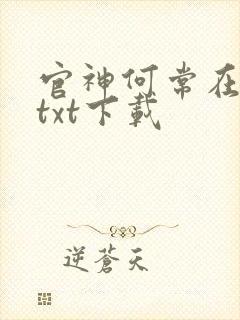 官神何常在
txt下載
逆蒼天